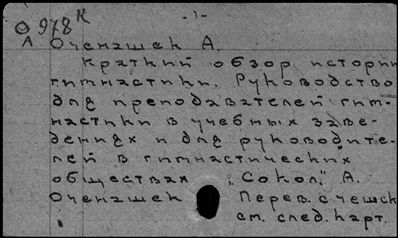 - 1 -
О 978 К
А
Оченашек А.
Краткий обзор истории
гимнастики. Руководство
для преподавателей гим-
настики в учебных заве-
дениях и для руководите-
лей в гимнастических
обществах „Сокол". А.
Оченашек Перев. с чешск.
см. след. карт.